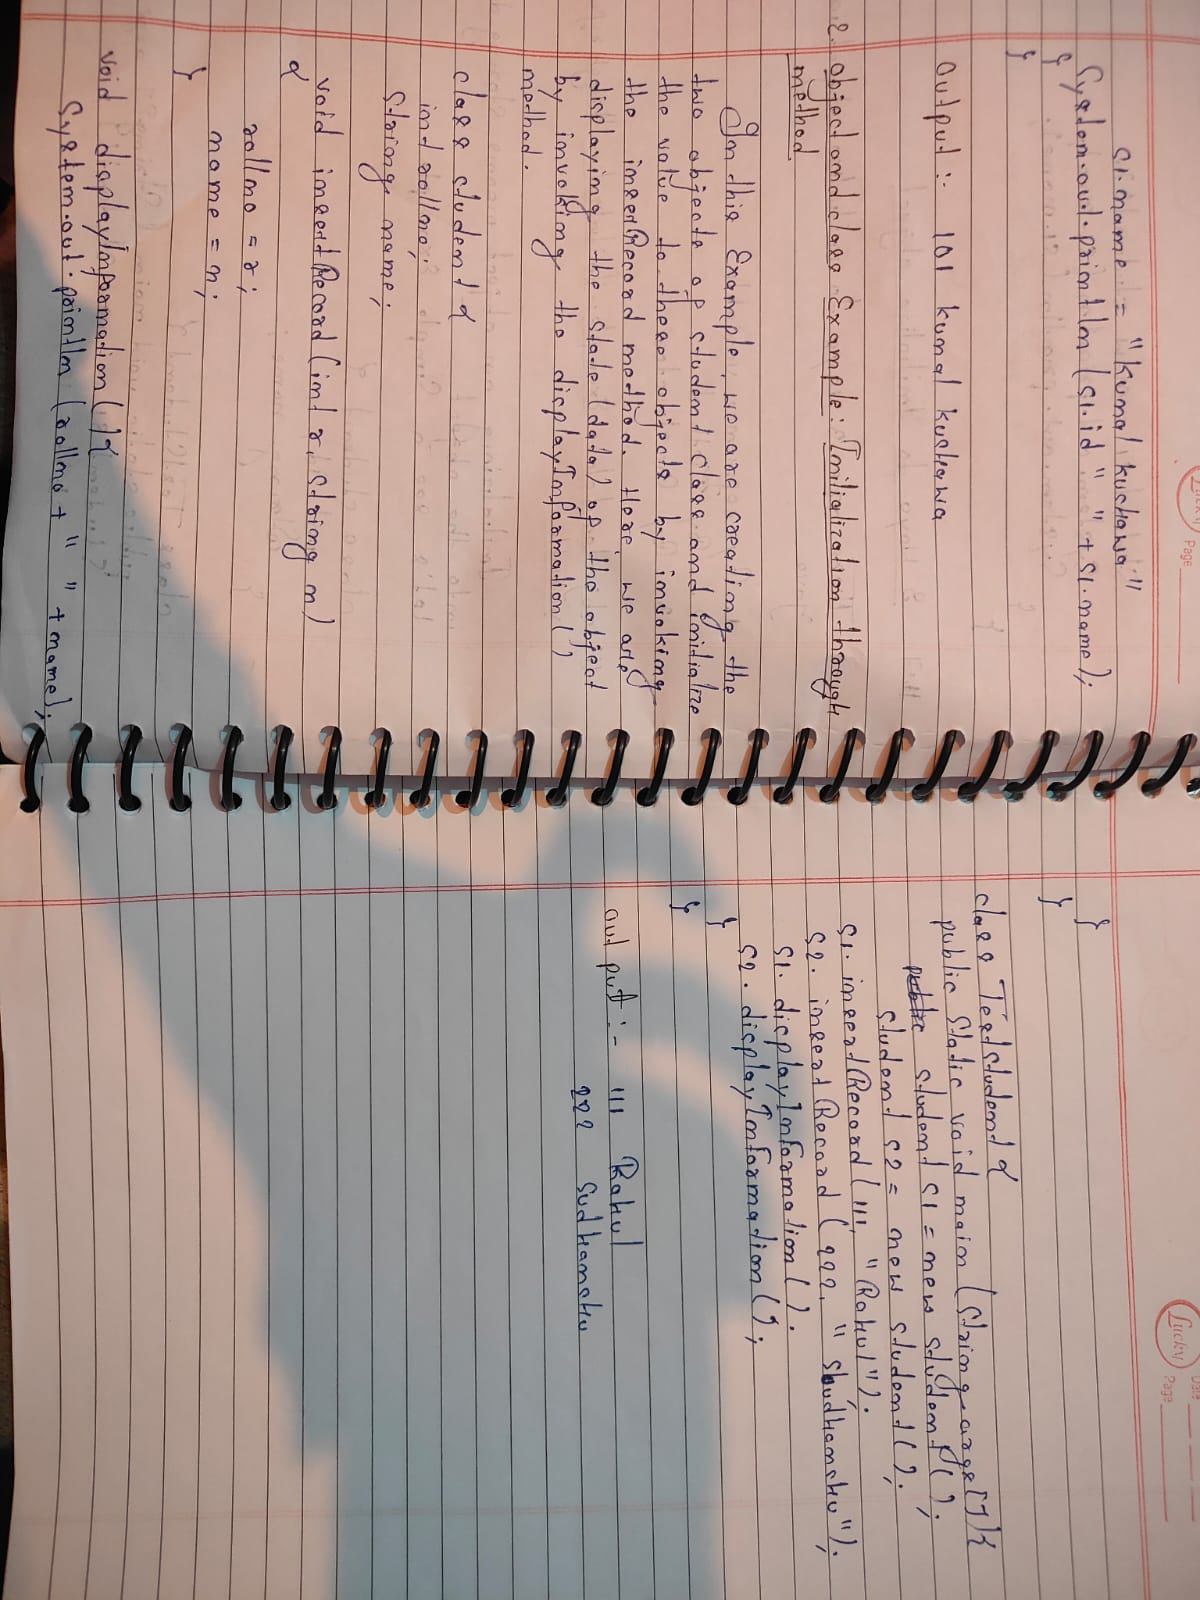 Lucky
Page
s1.name = "kunal kushawa"
System.out.println (s1.id " " + s1.name);
}
}
Output :- 101 kunal kushawa
2. object and class Example: Initialization through
method
In this Example, we are creating the
two objects of student class and initialize
the value to these objects by invoking
the insertRecord method. Here we are
displaying the state (data) of the object
by invoking the displayInformation()
method.
class student {
int rollno;
string name;
void insertRecord (int r, string n)
{
rollno = r;
name = n;
}
void displayInformation () {
System.out.println (rollno + " " + name);
Lucky
Date
Page
}
}
class Teststudent {
public static void main (string args[]){
student s1 = new student();
student s2 = new student();
s1.insertRecord (111, "Rahul");
s2.insertRecord (222, "sudhanshu");
s1.displayInformation();
s2.displayInformation();
}
}
output :- 111 Rahul
222 sudhanshu